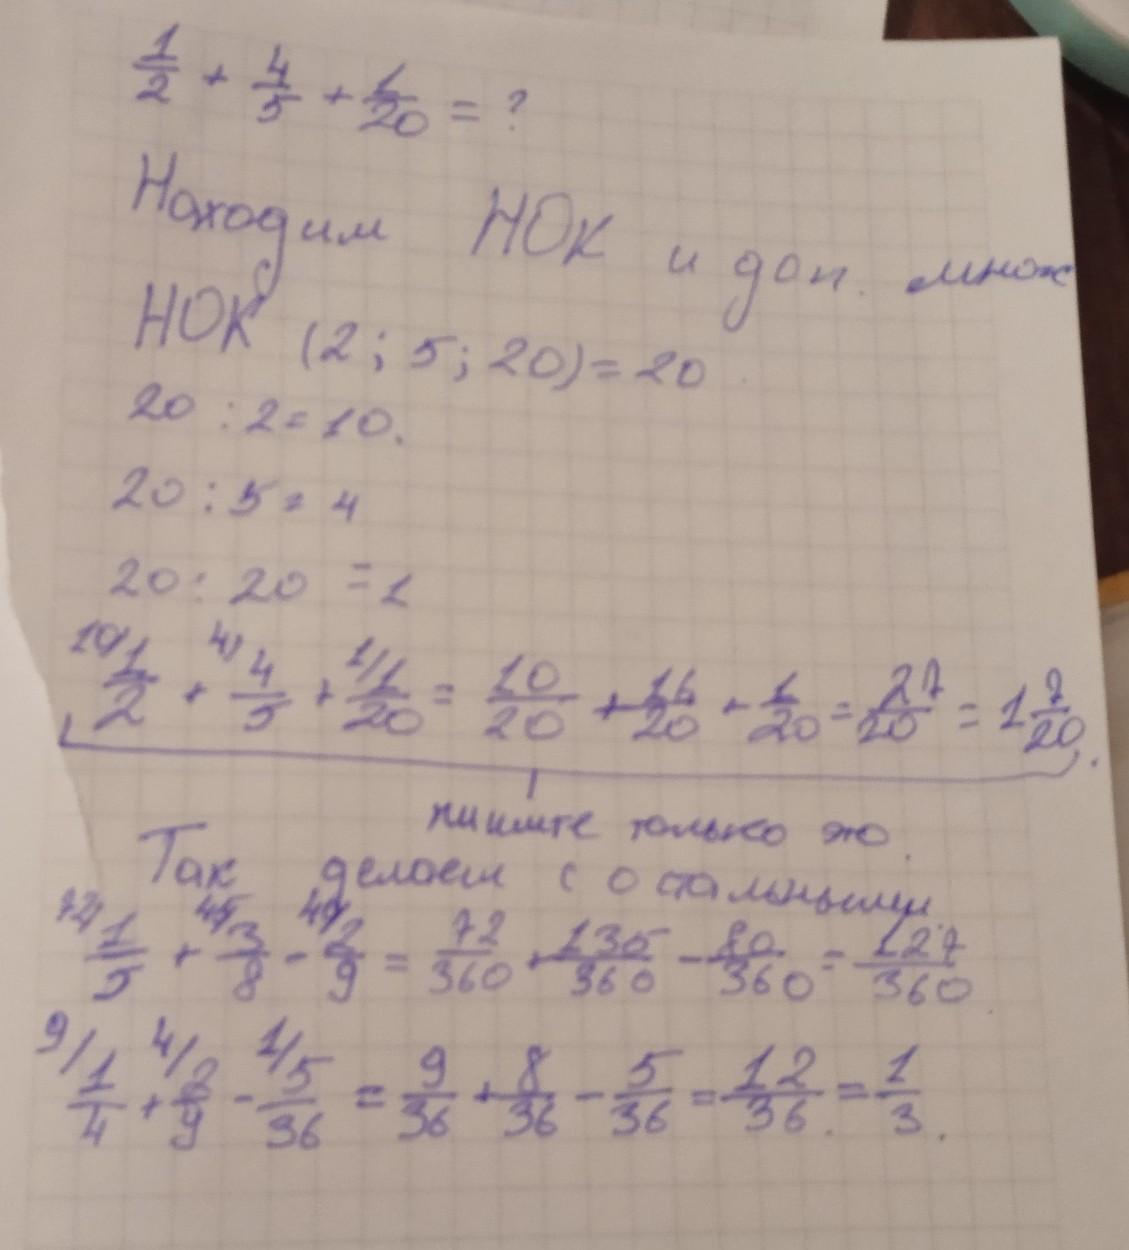 1/2 + 4/5 + 1/20 = ?
Находим НОК и доп. множ
НОК (2; 5; 20) = 20
20 : 2 = 10.
20 : 5 = 4
20 : 20 = 1
10/ 1/2 + 4/ 4/5 + 1/ 1/20 = 10/20 + 16/20 + 1/20 = 27/20 = 1 7/20.
пишите только это.
Так делаем с остальными
72/ 1/5 + 45/ 3/8 - 40/ 2/9 = 72/360 + 135/360 - 80/360 = 127/360
9/ 1/4 + 4/ 2/9 - 1/ 5/36 = 9/36 + 8/36 - 5/36 = 12/36 = 1/3.